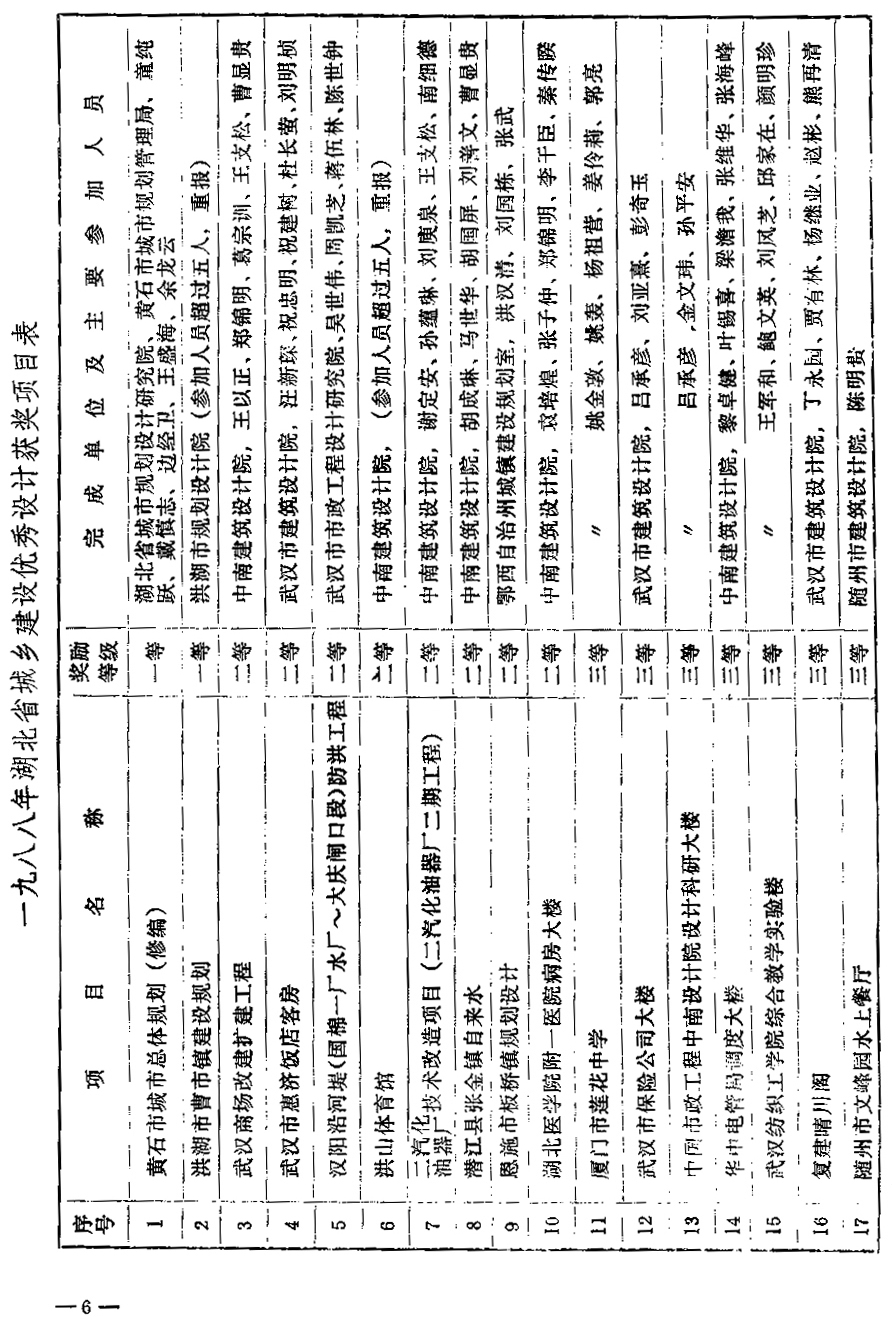 一九八八年湖北省城乡建设优秀设计获奖项目表
序号 项目名称 奖励等级 完成单位及主要参加人员
1 黄石市城市总体规划(修编) 一等 湖北省城市规划设计研究院、黄石市城市规划管理局、童纯
跃、戴慎志、边经卫、王盛海、余龙云
2 洪湖市曹市镇建设规划 一等 洪湖市规划设计院(参加人员超过五人,重报)
3 武汉商场改建扩建工程 二等 中南建筑设计院,王以正、郑锦明、葛宗训、王支松、曹显贵
4 武汉市惠济饭店客房 二等 武汉市建筑设计院,汪新蔡、祝忠明、祝建树、杜长萤、刘明桢
5 汉阳沿河堤(国棉一厂水厂~大庆闸口段)防洪工程 二等 武汉市市政工程设计研究院、吴世伟、周凯芝、蒋伍林、陈世钟
6 洪山体育馆 二等 中南建筑设计院,(参加人员超过五人,重报)
7 二汽化油器厂技术改造项目(二汽化油器厂二期工程) 二等 中南建筑设计院,谢定安、孙蕴琳、刘庚泉、王支松、南细德
8 潜江县张金镇自来水 二等 中南建筑设计院,胡成琳、马世华、胡国屏、刘善文、曹显贵
9 恩施市板桥镇规划设计 二等 鄂西自治州城镇建设规划室,洪汉清、刘国栋、张武
10 湖北医学院附一医院病房大楼 二等 中南建筑设计院,袁培煌、张子仲、郑锦明、李干臣、秦传睽
11 厦门市莲花中学 三等 〃 姚金敦、姚轰、杨祖营、姜伶莉、郭亮
12 武汉市保险公司大楼 三等 武汉市建筑设计院,吕承彦、刘亚熹、彭奇玉
13 中国市政工程中南设计院设计科研大楼 三等 〃 吕承彦,金文玮、孙平安
14 华中电管局调度大楼 三等 中南建筑设计院,黎卓健、叶锡喜、梁澹我、张维华、张海峰
15 武汉纺织工学院综合教学实验楼 三等 〃 王军和、鲍文英、刘风芝、邱家在、颜明珍
16 复建晴川阁 三等 武汉市建筑设计院,丁永园、贾有林、杨继业、赵彬、熊再清
17 随州市文峰园水上餐厅 三等 随州市建筑设计院,陈明贵
—6—